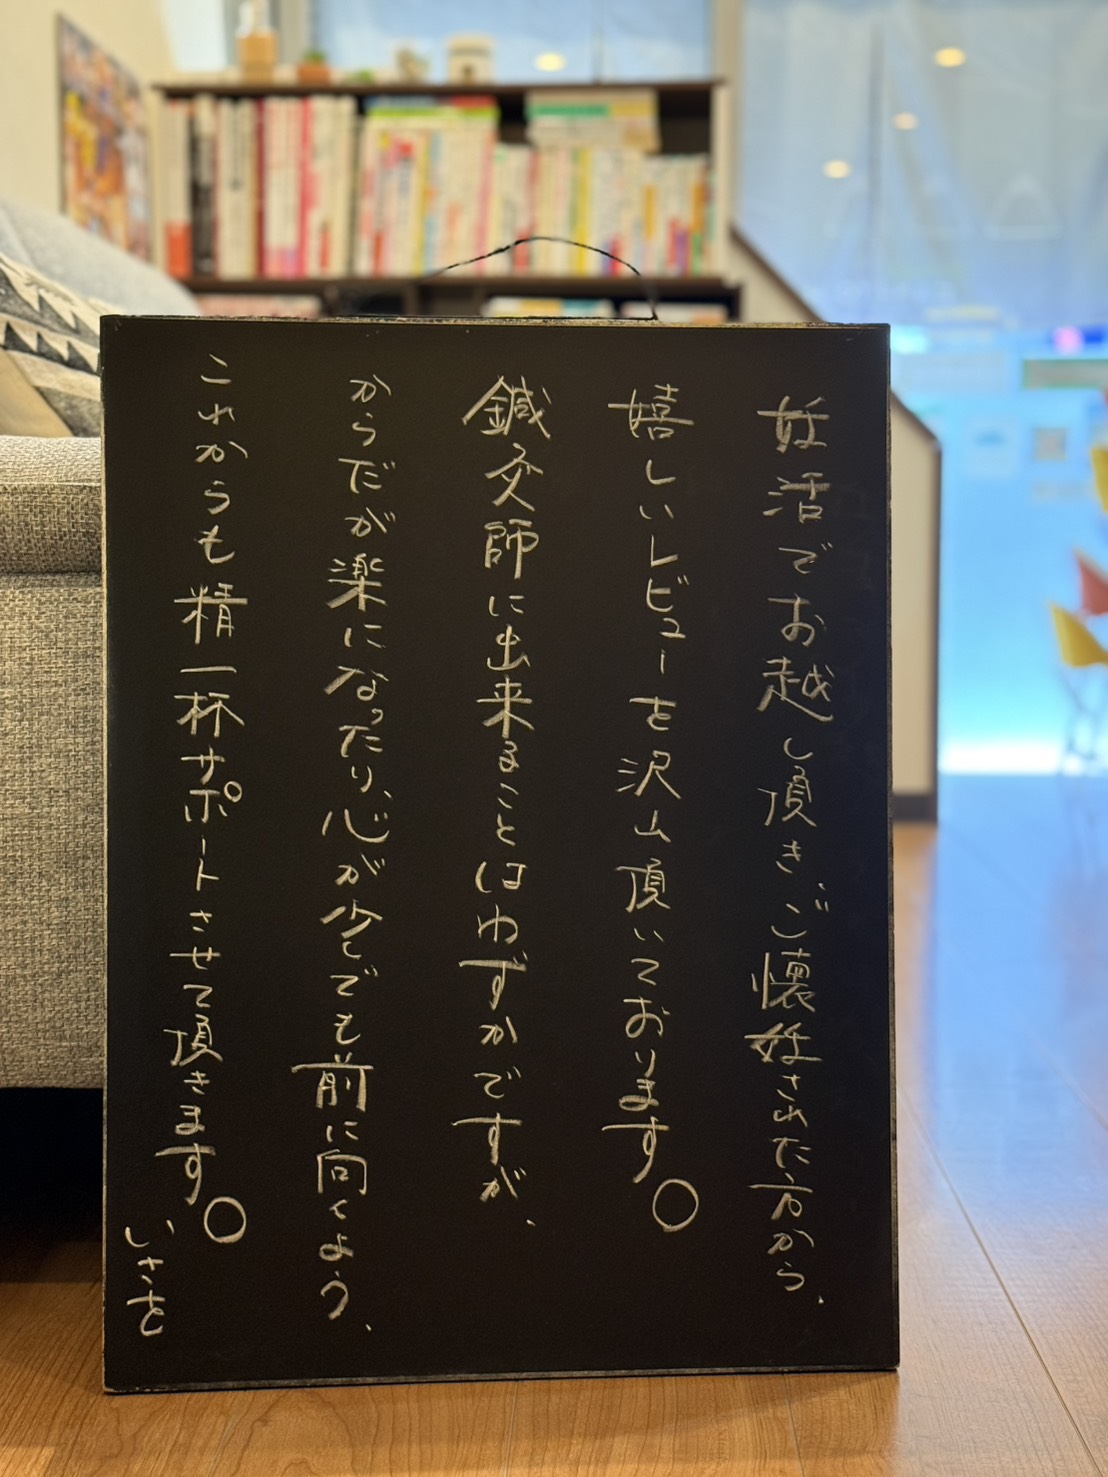 妊活でお越し頂き、ご懐妊された方から、
嬉しいレビューを沢山頂いております。
鍼灸師に出来ることはわずかですが、
からだが楽になったり、心が少しでも前に向くよう、
これからも精一杯サポートさせて頂きます。
いさを